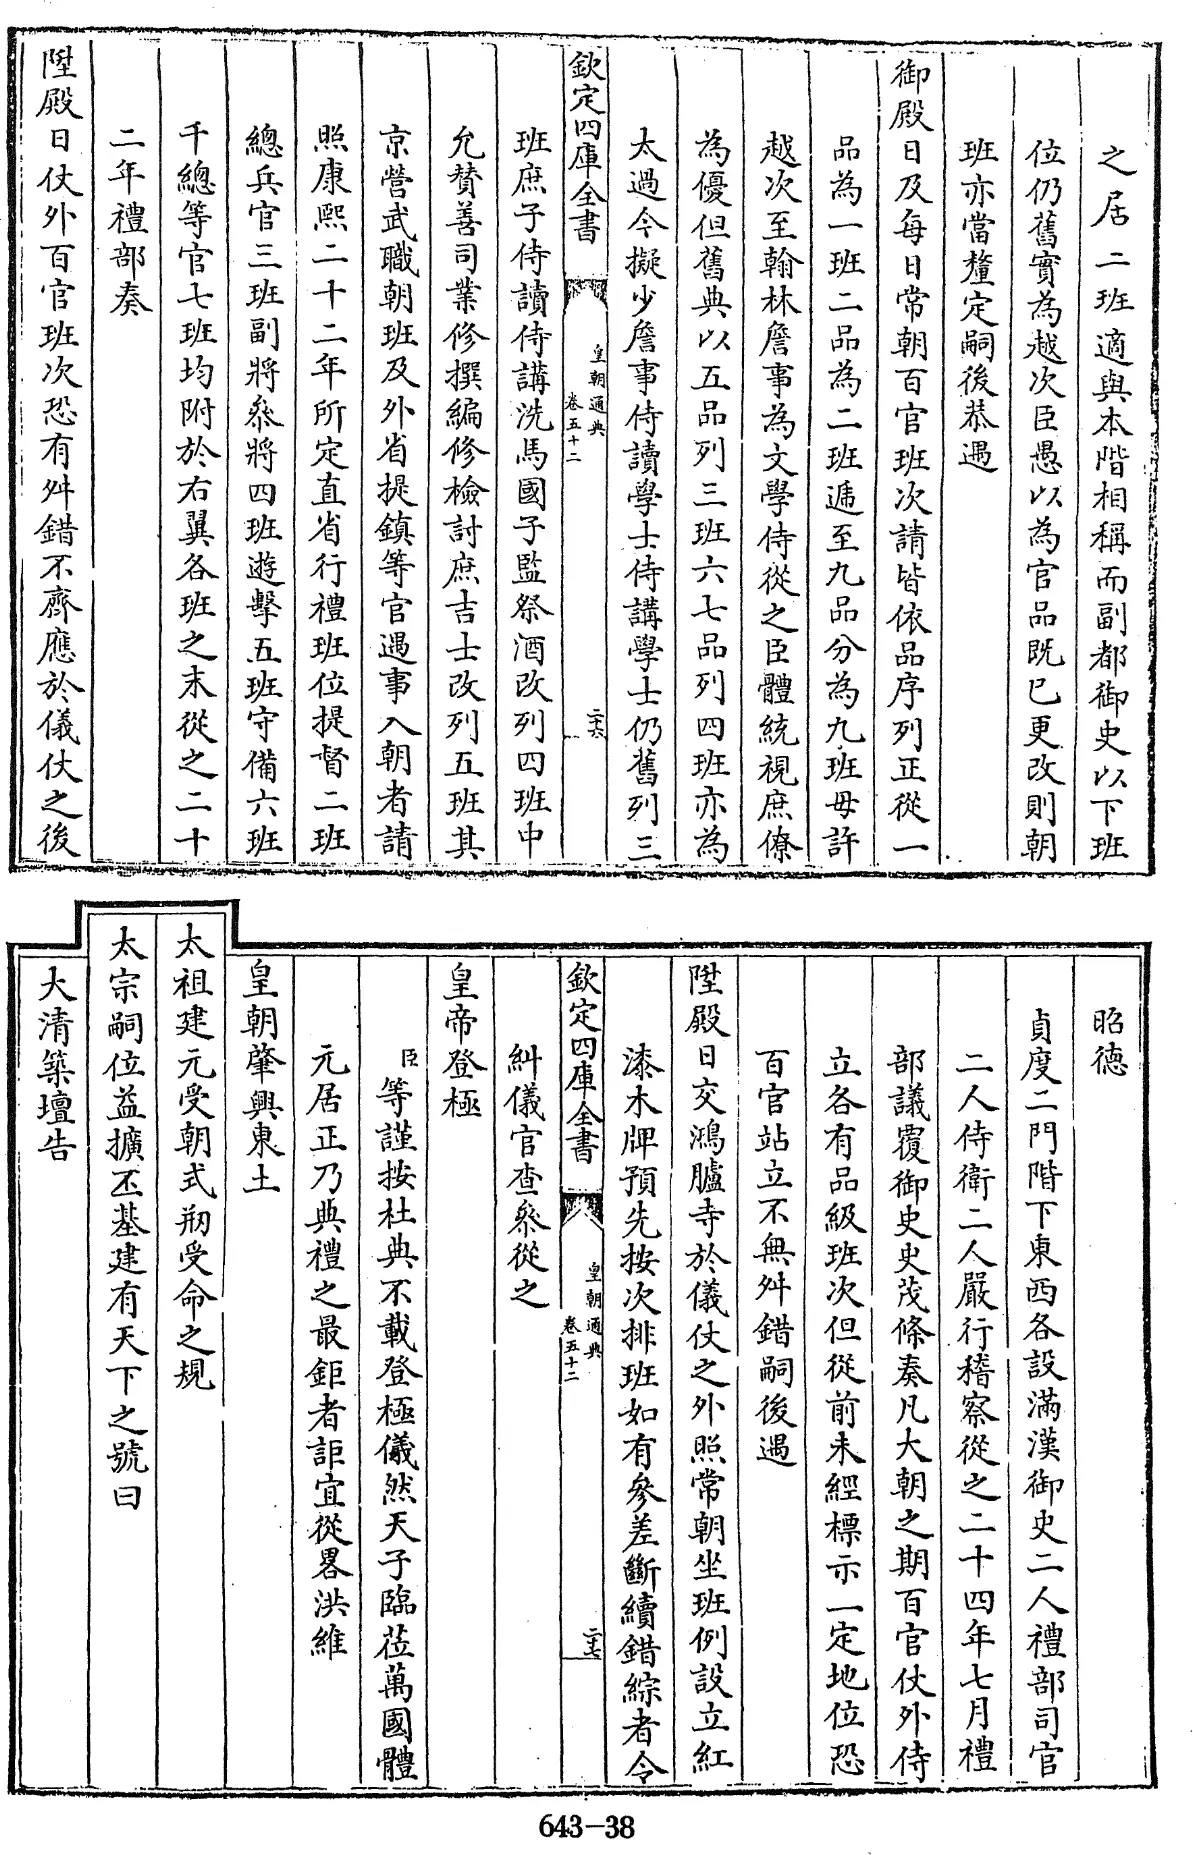 之居二班適與本階相稱而副都御史以下班
位仍舊實為越次臣愚以為官品既已更改則朝
班亦當釐定嗣後恭遇
御殿日及每日常朝百官班次請皆依品序列正從一
品為一班二品為二班遞至九品分為九班毋許
越次至翰林詹事為文學侍從之臣體統視庶僚
為優但舊典以五品列三班六七品列四班亦為
太過今擬少詹事侍讀學士侍講學士仍舊列三
欽定四庫全書
皇朝通典
卷五十二
二十六
班庶子侍讀侍講洗馬國子監祭酒改列四班中
允贊善司業修撰編修檢討庶吉士改列五班其
京營武職朝班及外省提鎮等官遇事入朝者請
照康熙二十二年所定直省行禮班位提督二班
總兵官三班副將叅將四班遊擊五班守備六班
千總等官七班均附於右翼各班之末從之二十
二年禮部奏
陞殿日仗外百官班次恐有舛錯不齊應於儀仗之後
昭德
貞度二門階下東西各設滿漢御史二人禮部司官
二人侍衛二人嚴行稽察從之二十四年七月禮
部議覆御史史茂條奏凡大朝之期百官仗外侍
立各有品級班次但從前未經標示一定地位恐
百官站立不無舛錯嗣後遇
陞殿日交鴻臚寺於儀仗之外照常朝坐班例設立紅
漆木牌預先按次排班如有參差斷續錯綜者令
欽定四庫全書
皇朝通典
卷五十二
二十七
糾儀官查叅從之
皇帝登極
臣等謹按杜典不載登極儀然天子臨莅萬國體
元居正乃典禮之最鉅者詎宜從畧洪維
皇朝肇興東土
太祖建元受朝式刱受命之規
太宗嗣位益擴丕基建有天下之號曰
大清築壇告
643-38